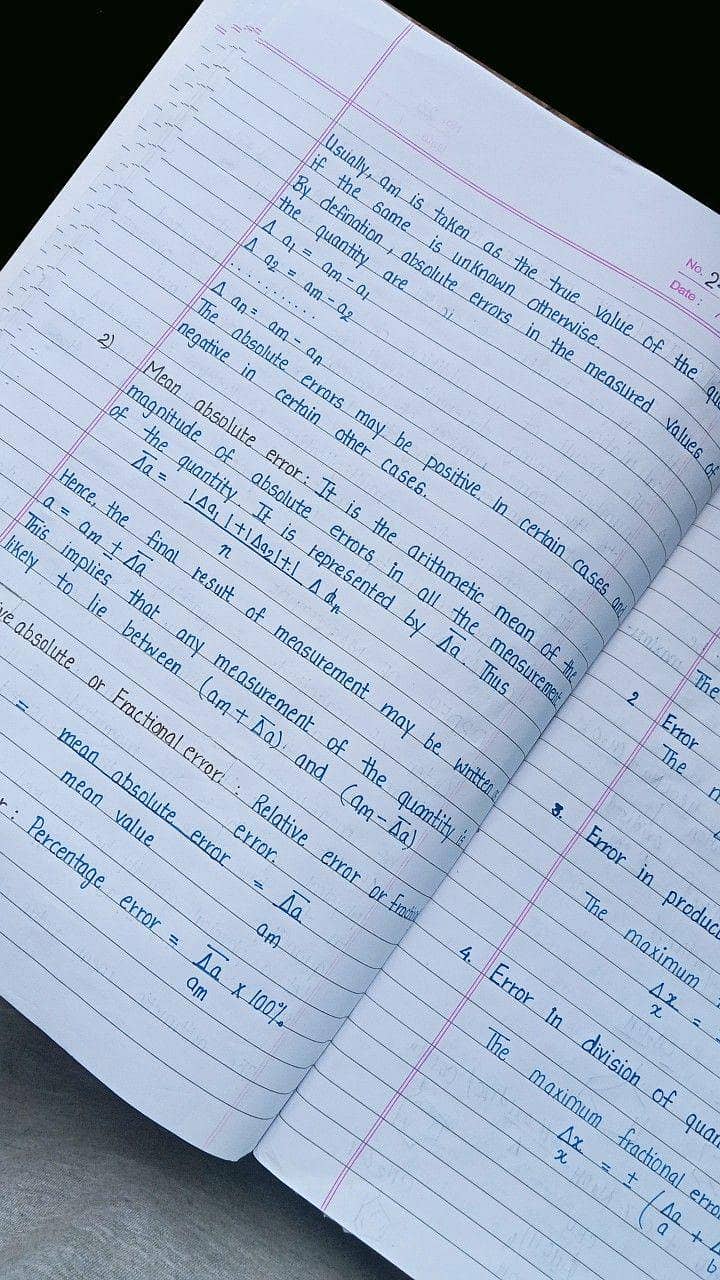 No. 2
Date :
Usually, am is taken as the true value of the
if the same is unknown otherwise.
By defination, absolute errors in the measured values of
the quantity are
Δ a1 = am - a1
Δ a2 = am - a2
............
Δ an = am - an
The absolute errors may be positive in certain cases and
negative in certain other cases.
2) Mean absolute error : It is the arithmetic mean of the
magnitude of absolute errors in all the measurement
of the quantity. It is represented by Δ̅a. Thus
Δ̅a = |Δa1|+|Δa2|+| Δ an
n
Hence, the final result of measurement may be written
a = am ± Δ̅a
This implies that any measurement of the quantity is
likely to lie between (am + Δ̅a) and (am - Δ̅a)
absolute or Fractional error. : Relative error or
error.
= mean absolute error = Δ̅a
mean value am
: Percentage error = Δ̅a x 100%
am
The
2 Error
The
3. Error in
The maximum
Δx =
x
4. Error in division of
The maximum fractional
Δx = ± (Δa +
x a b